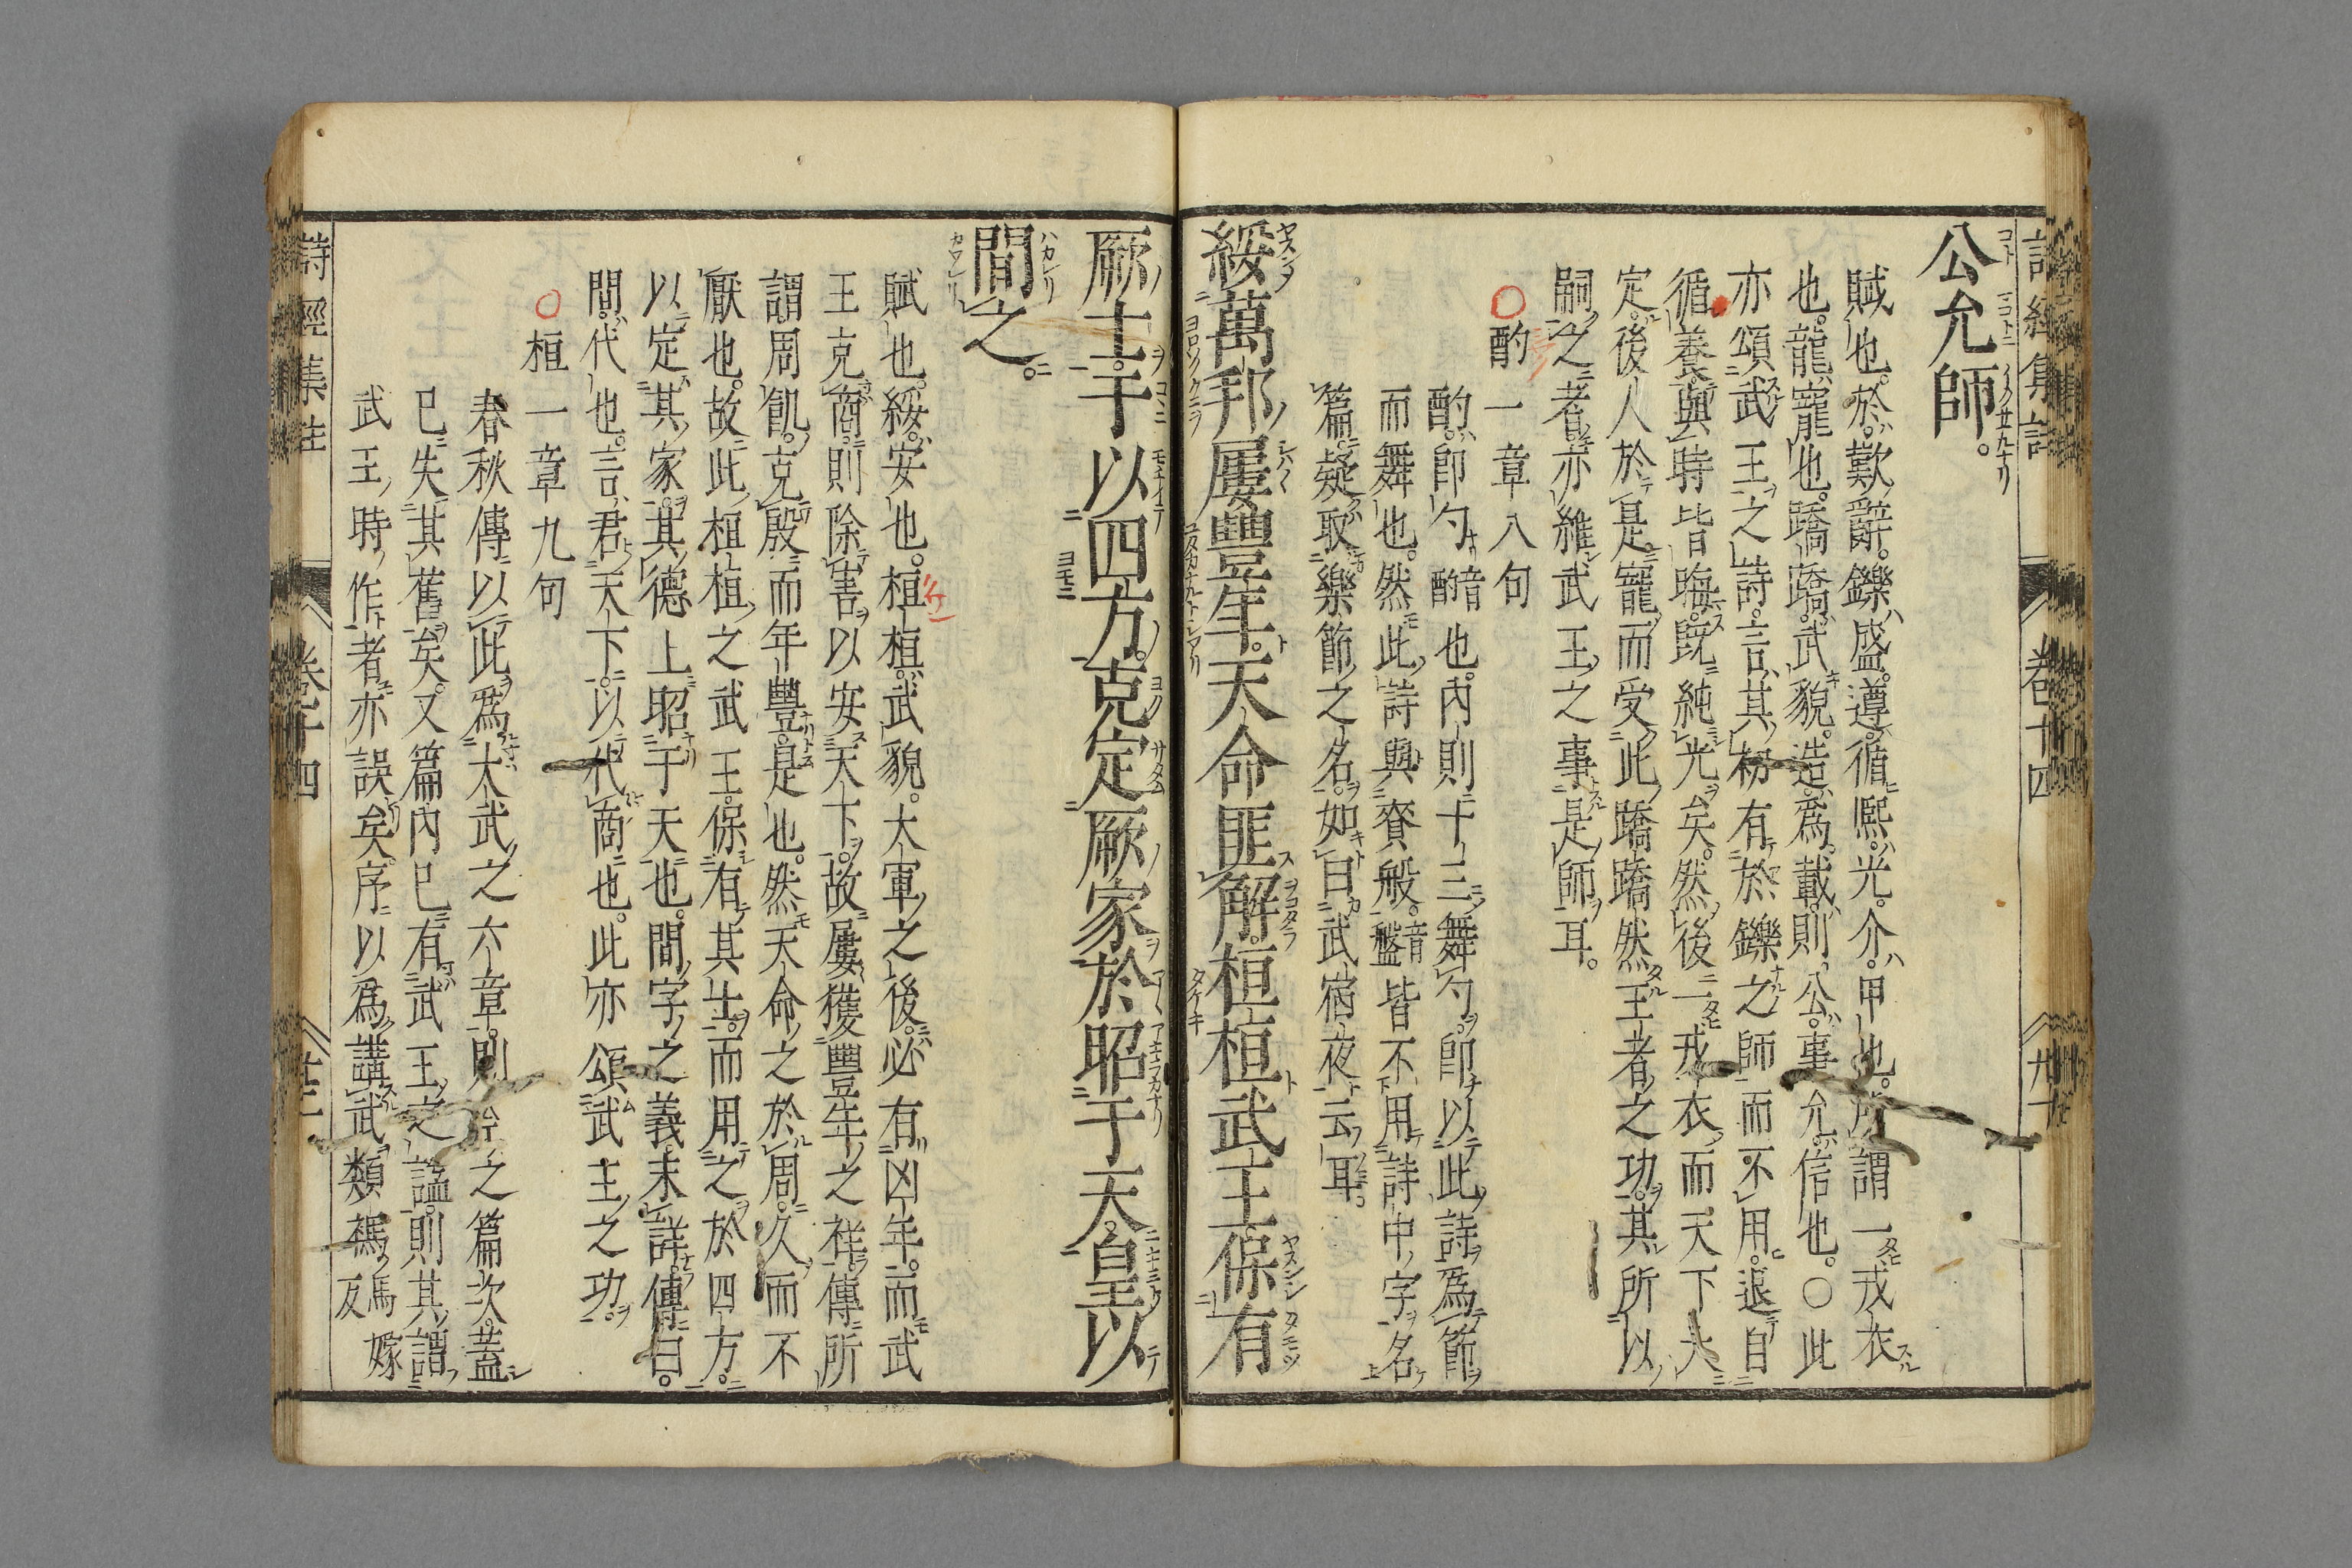 公允師。
賦也。於。歎辭。鑠。盛。遵。循。熈。光。介。甲也。所謂一戎衣
也。龍。寵也。蹻蹻。武貌。造。爲。載。則。公。事。允。信也。○此
亦頌武王之詩。言。其初有於鑠之師而不用。退自
循養。與時皆晦。既純光矣。然後一戎衣而天下大
定。後人於是。寵而受此蹻蹻然王者之功。其所以
嗣之者。亦維武王之事是師耳。
○酌一章八句
酌。卽勺也。音酌內則十三舞勺。卽以此詩爲節
而舞也。然此詩與賚般。音盤皆不用詩中字名
篇。疑取樂節之名。如曰武宿夜云耳。
綏萬邦屢豐年。天命匪解。桓桓武王保有
厥士。于以四方。克定厥家於昭于天皇以
間之。
賦也。綏。安也。桓桓。武貌。大軍之後。必有凶年。而武
王克商。則除害以安天下。故屢獲豐年之祥。傳所
謂周飢。克殷而年豐。是也。然天命之於周。久而不
厭也。故此桓桓之武王。保有其士。而用之於四方。
以定其家。其德上昭于天也。間字之義未詳。傳曰。
間。代也。言君天下。以代商也。此亦頌武王之功。
○桓一章九句
春秋傳以此爲大武之六章。則今之篇次。蓋
已失其舊矣。又篇內已有武王之謚。則其謂
武王時作者。亦誤矣。序以爲講武類禡。馬嫁反
詩經集註
卷十四